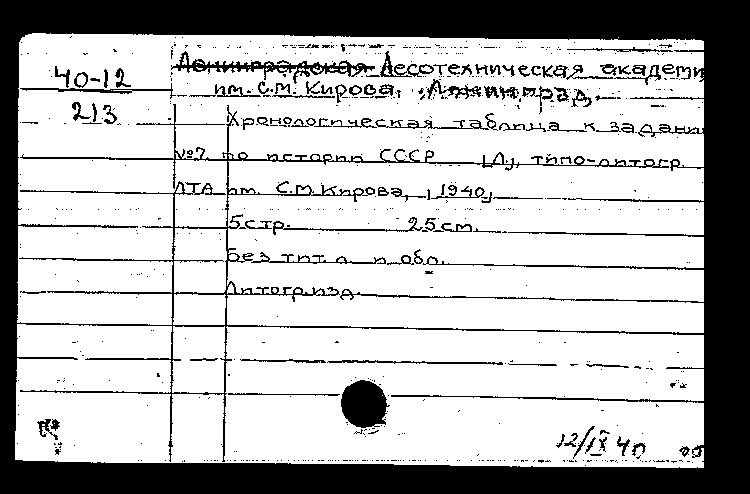 40-12
213
Ленинградская Лесотехническая академи
им. С.М. Кирова, Ленинград.
Хронологическая таблица к задани
№7 по истории СССР [Л.], типо-литогр.
ЛТА им. С.М. Кирова, [1940]
5 стр. 25 см.
Без тит. л. и обл.
Литогр. изд.
12/IX 40